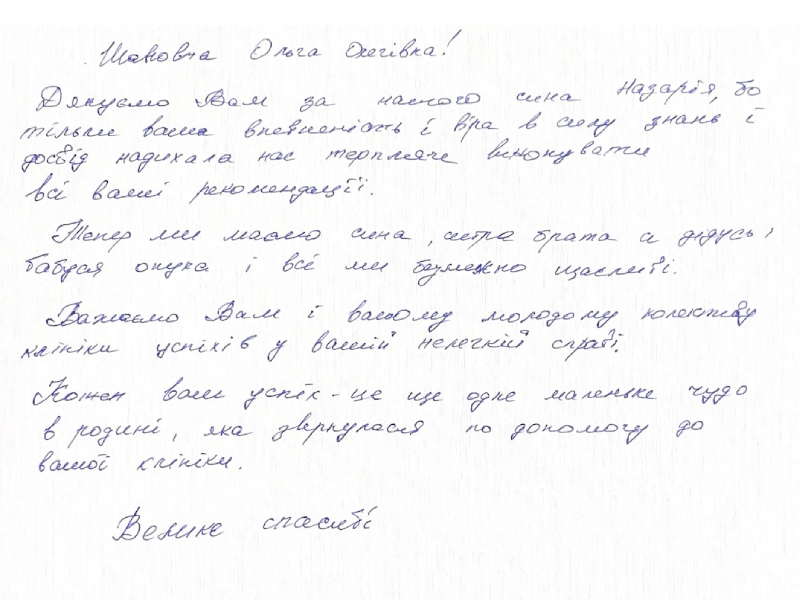 Шановна Ольга Олегівка!
Дякуємо Вам за нашого сина Назарія, бо
тільки ваша впевненість і віра в силу знань і
досвід надихала нас терпляче виконувати
всі ваші рекомендації.
Тепер ми маємо сина, сестра брата а дідусь і
бабуся онука і всі ми безмежно щасливі.
Бажаємо Вам і вашому молодому колективу
клініки успіхів у вашій нелегкій справі.
Кожен ваш успіх - це ще одне маленьке чудо
в родині, яка звернулася по допомогу до
вашої клініки.
Велике спасибі